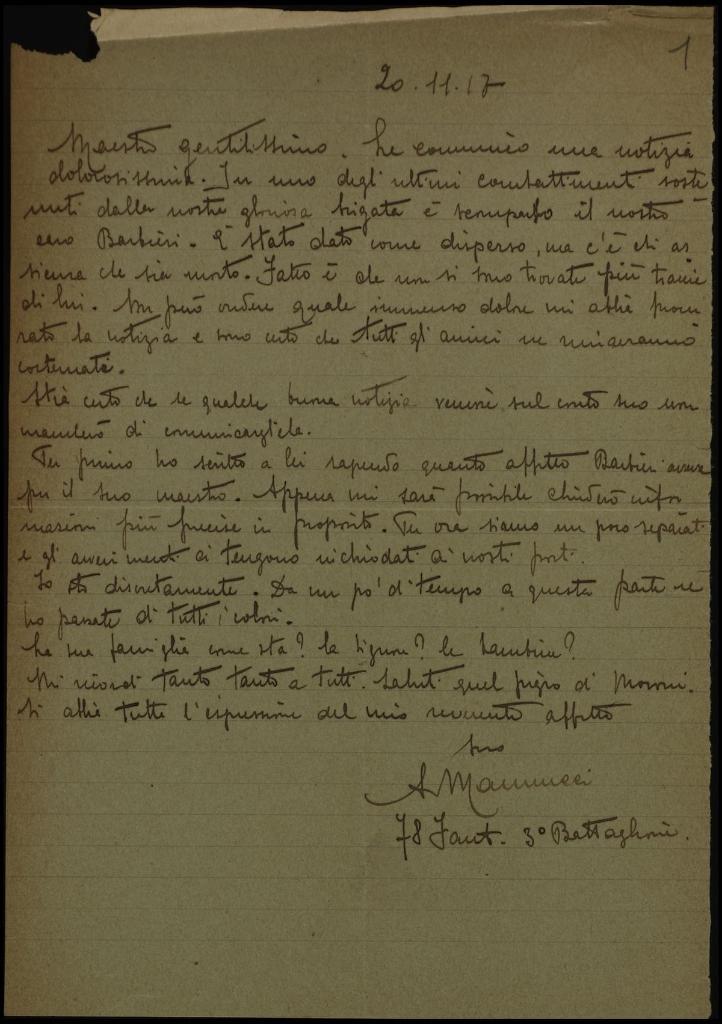 1
20.11.17
Maestro gentilissimo. Le comunico una notizia
dolorosissima. In uno degli ultimi combattimenti soste
nuti dalla nostra gloriosa brigata è scomparso il nostro
caro Barbieri. È stato dato come disperso, ma c'è chi as
sicura che sia morto. Fatto è che non si sono trovate più tracce
di lui. Non può credere quale immenso dolore mi abbia procu
rato la notizia e sono certo che tutti gli amici ne rimarranno
costernati.
Stia certo che se qualche buona notizia venisse sul conto suo non
mancherò di comunicargliela.
Per primo ho scritto a lei sapendo quanto affetto Barbieri avesse
per il suo maestro. Appena mi sarà possibile chiederò infor
mazioni più precise in proposito. Per ora siamo un poco separati
e gli avvenimenti ci tengono inchiodati ai nostri posti.
Io sto discretamente. Da un po' di tempo a questa parte ne
ho passate di tutti i colori.
La sua famiglia come sta? la signora? le bambine?
Mi ricordi tanto tanto a tutti. Saluti quel pigro di Moroni.
Si abbia tutta l'espressione del mio reverente affetto
Suo
A Mannucci
78 Fant. 3º Battaglione.